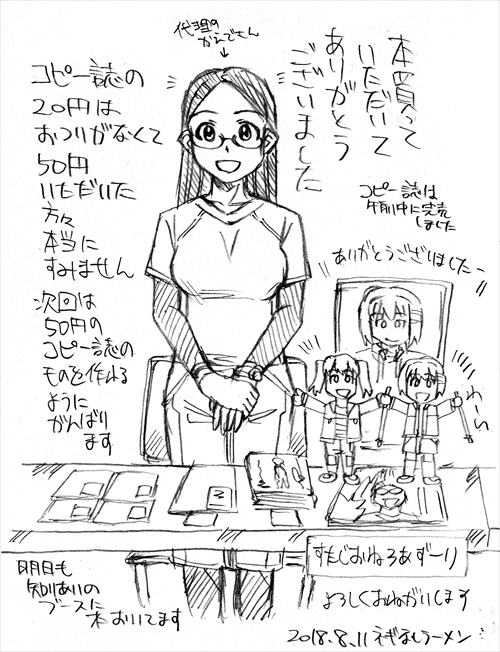 代理の
かえでさん
本買って
いただいて
ありがとう
ございました
コピー誌の
20円は
おつりがなくて
50円
いただいた
方々
本当に
すみません
次回は
50円の
コピー誌の
ものを作れる
ように
がんばり
ます
コピー誌は
午前中に完売
しました
ありがとうございましたー
わーい
明日も
知りあいの
ブースに
本おいてます
すたじおねろあずーり
よろしくおねがいします
2018.8.11 ネギなしラーメン